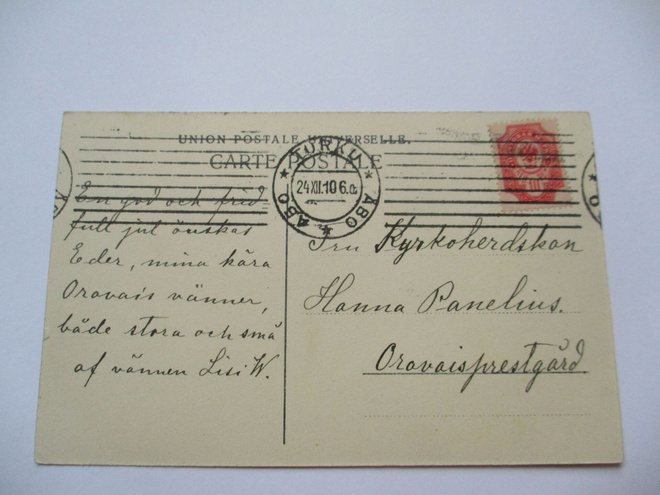 UNION POSTALE UNIVERSELLE.
CARTE POSTALE
TURKU
24.XII.10 6.a.
ÅBO ÅBO
En god och frid
full jul önskas
Eder, mina kära
Oravais vänner,
både stora och små
af vännen Lisi W.
Fru Kyrkoherdskan
Hanna Panelius.
Oravaisprestgård